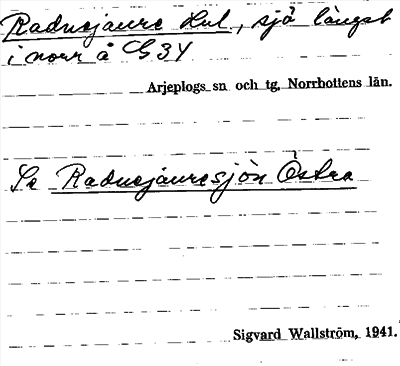 Radnejaure Lul, sjö längst
i norr å G34
Arjeplogs sn och tg, Norrbottens län.
Se Radnejauresjön Östra
Sigvard Wallström, 1941.